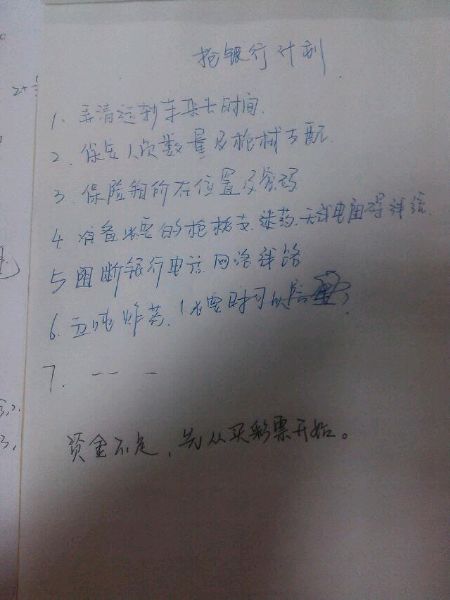 抢银行计划
1. 弄清运钞车来去时间.
2. 保安人员数量及枪械支配.
3 保险箱所在位置及密码
4 准备必要的枪械支. 炸药. 无线电
5 阻断银行电话. 网络线路
6. 五吨炸药. (必要时可以
7. — — —
资金不足，先从买彩票开始。
2+